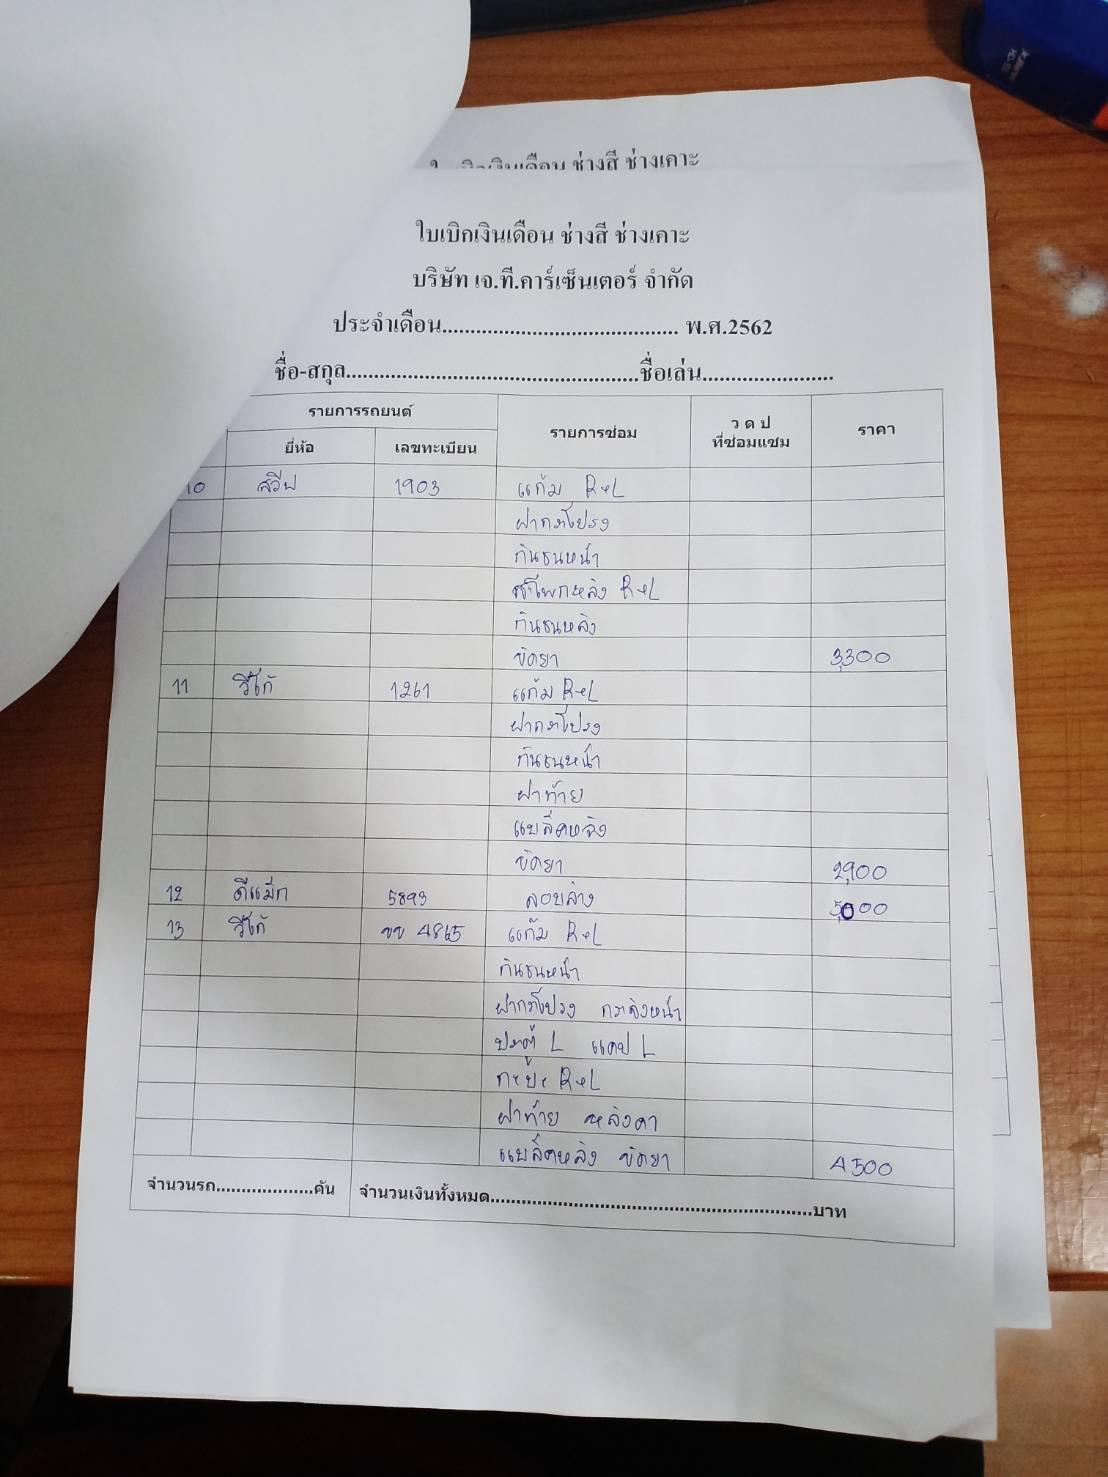 ช่างสี ช่างเคาะ
ใบเบิกเงินเดือน ช่างสี ช่างเคาะ
บริษัท เจ.ที.คาร์เซ็นเตอร์ จำกัด
ประจำเดือน.......................................... พ.ศ.2562
ชื่อ-สกุล....................................................ชื่อเล่น.......................
รายการรถยนต์ รายการซ่อม ว ด ป ที่ซ่อมแซม ราคา
ยี่ห้อ เลขทะเบียน
10 สวีฟ 1903 แก้ม R+L
ฝากระโปรง
กันชนหน้า
สะโพกหลัง R+L
กันชนหลัง
ขัดยา 3,300
11 วีโก้ 1261 แก้ม R+L
ฝากระโปรง
กันชนหน้า
ฝาท้าย
แบล็คหลัง
ขัดยา 2,900
12 ดีแม็ก 5893 ลอบล้าง 5,000
13 วีโก้ ขข 4865 แก้ม R+L
กันชนหน้า
ฝากระโปรง กระจังหน้า
ประตู L แคป L
กะบะ R+L
ฝาท้าย หลังคา
แบล็คหลัง ขัดยา 4500
จำนวนรถ...................คัน จำนวนเงินทั้งหมด..............................................................บาท